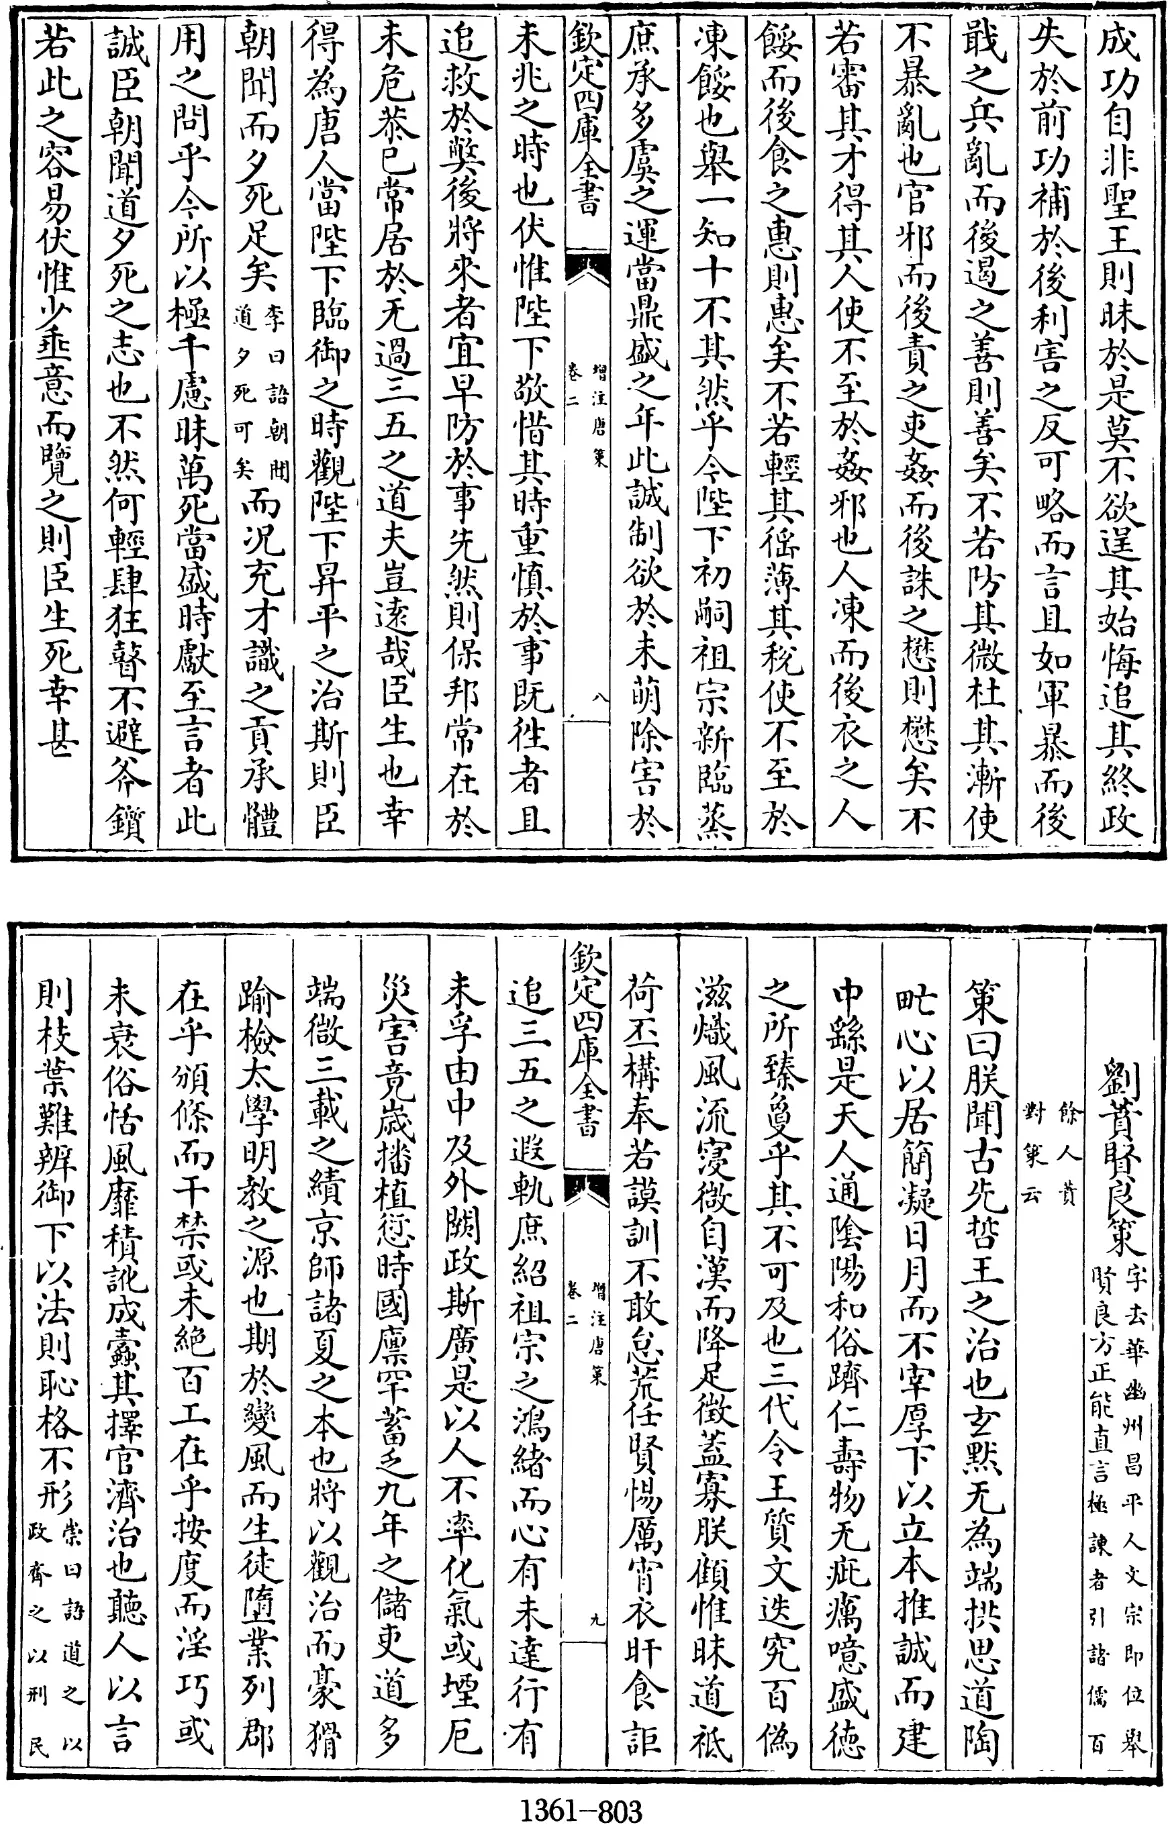 成功自非聖王則昧於是莫不欲逞其始悔追其終政
失於前功補於後利害之反可略而言且如軍暴而後
戢之兵亂而後遏之善則善矣不若防其微杜其漸使
不暴亂也官邪而後責之吏姦而後誅之懋則懋矣不
若審其才得其人使不至於姦邪也人凍而後衣之人
餒而後食之惠則惠矣不若輕其徭薄其稅使不至於
凍餒也舉一知十不其然乎今陛下初嗣祖宗新臨蒸
庶承多虞之運當鼎盛之年此誠制欲於未萌除害於
欽定四庫全書
增注唐策
卷二
八
未兆之時也伏惟陛下敬惜其時重慎於事既徃者且
追救於獘後將來者宜早防於事先然則保邦常在於
未危恭已常居於无過三五之道夫豈遠哉臣生也幸
得為唐人當陛下臨御之時觀陛下昇平之治斯則臣
朝聞而夕死足矣李曰語朝聞道夕死可矣而况充才識之貢承體
用之問乎今所以極千慮昧萬死當盛時獻至言者此
誠臣朝聞道夕死之志也不然何輕肆狂瞽不避斧鑕
若此之容易伏惟少垂意而覽之則臣生死幸甚
劉蕡賢良策字去華幽州昌平人文宗即位舉賢良方正能直言極諫者引諸儒百
餘人蕡對策云
策曰朕聞古先哲王之治也玄默无為端拱思道陶
甿心以居簡凝日月而不宰厚下以立本推誠而建
中繇是天人通陰陽和俗躋仁壽物无疵癘噫盛徳
之所臻敻乎其不可及也三代令王質文迭究百偽
滋熾風流寖微自漢而降足徵葢寡朕顧惟昧道祗
荷丕構奉若謨訓不敢怠荒任賢惕厲宵衣旰食詎
欽定四庫全書
增注唐策
卷二
九
追三五之遐軌庶紹祖宗之鴻緒而心有未達行有
未孚由中及外闕政斯廣是以人不率化氣或堙厄
災害竟嵗播植愆時國廪罕蓄乏九年之儲吏道多
端微三載之績京師諸夏之本也將以觀治而豪猾
踰檢太學明教之源也期於變風而生徒墮業列郡
在乎頒條而干禁或未絶百工在乎按度而淫巧或
未衰俗恬風靡積訛成蠧其擇官濟治也聽人以言
則枝葉難辨御下以法則恥格不形崇曰語道之以政齊之以刑民
1361-803